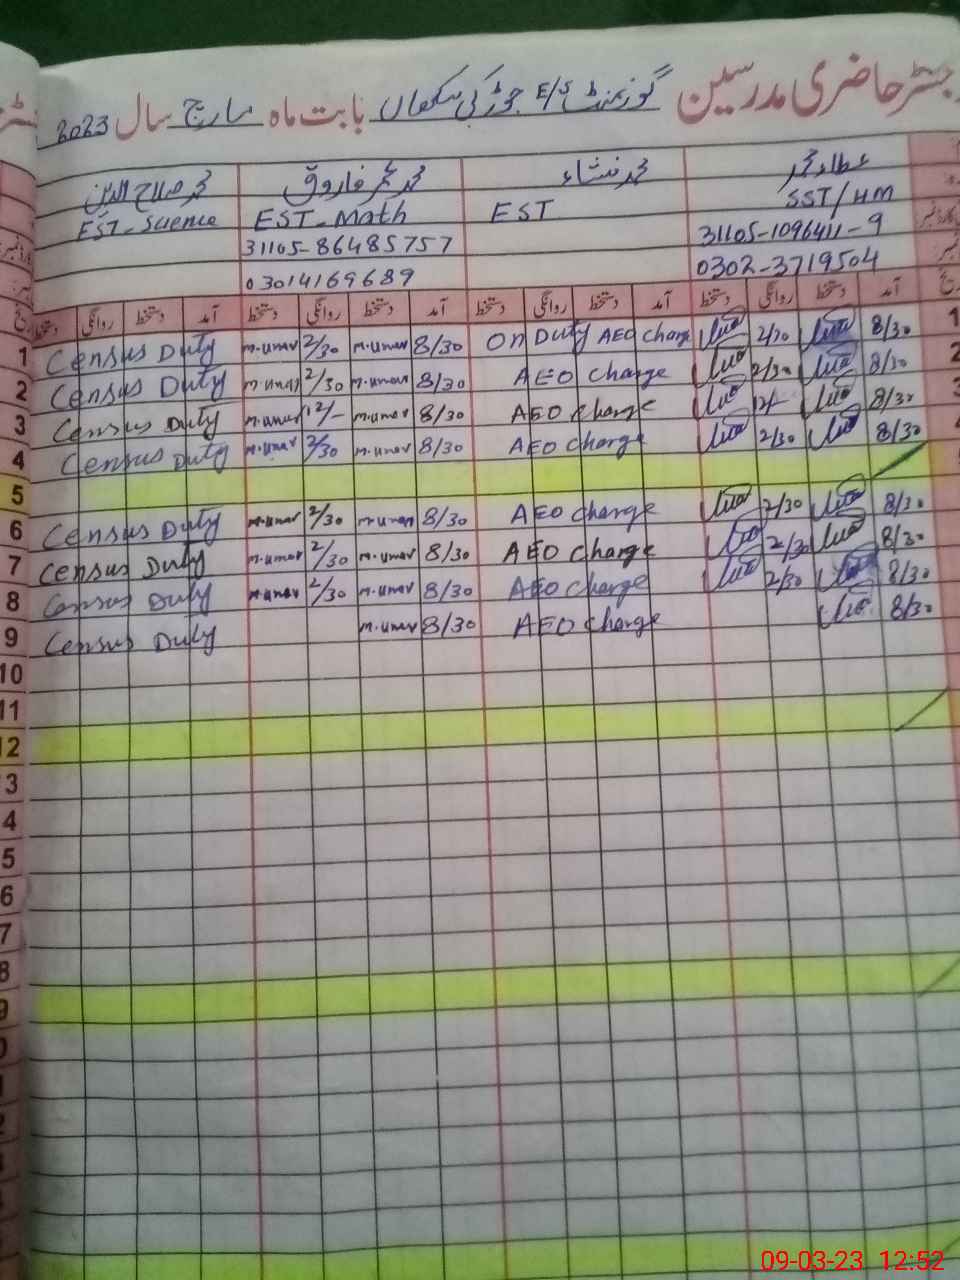 رجسٹر حاضری مدرسین گورنمنٹ E/S جوڑکی سکھاں بابت ماہ مارچ سال 2023
عطاء محمد محمد منشاء محمد عمر فاروق محمد صلاح الدین
SST/HM EST EST-Math EST-Science
31105-1096411-9 31105-86485757
0302-3719504 03014169689
آمد دستخط روانگی دستخط آمد دستخط روانگی دستخط آمد دستخط روانگی دستخط آمد دستخط روانگی دستخط
1 Census Duty M.Umar 2/30 M.Umar 8/30 On Duty AEO Charge 2/30 8/30
2 Census Duty M.Umar 2/30 M.Umar 8/30 AEO Charge 2/30 8/30
3 Census Duty M.Umar 12/- M.Umar 8/30 AEO Charge 12/- 8/30
4 Census Duty M.Umar 2/30 M.Umar 8/30 AEO Charge 2/30 8/30
5
6 Census Duty M.Umar 2/30 M.Umar 8/30 AEO Charge 2/30 8/30
7 Census Duty M.Umar 2/30 M.Umar 8/30 AEO Charge 2/30 8/30
8 Census Duty M.Umar 2/30 M.Umar 8/30 AEO Charge 2/30 8/30
9 Census Duty M.Umar 8/30 AEO Charge 8/30
10
11
12
3
4
5
6
7
8
9
09-03-23 12:52